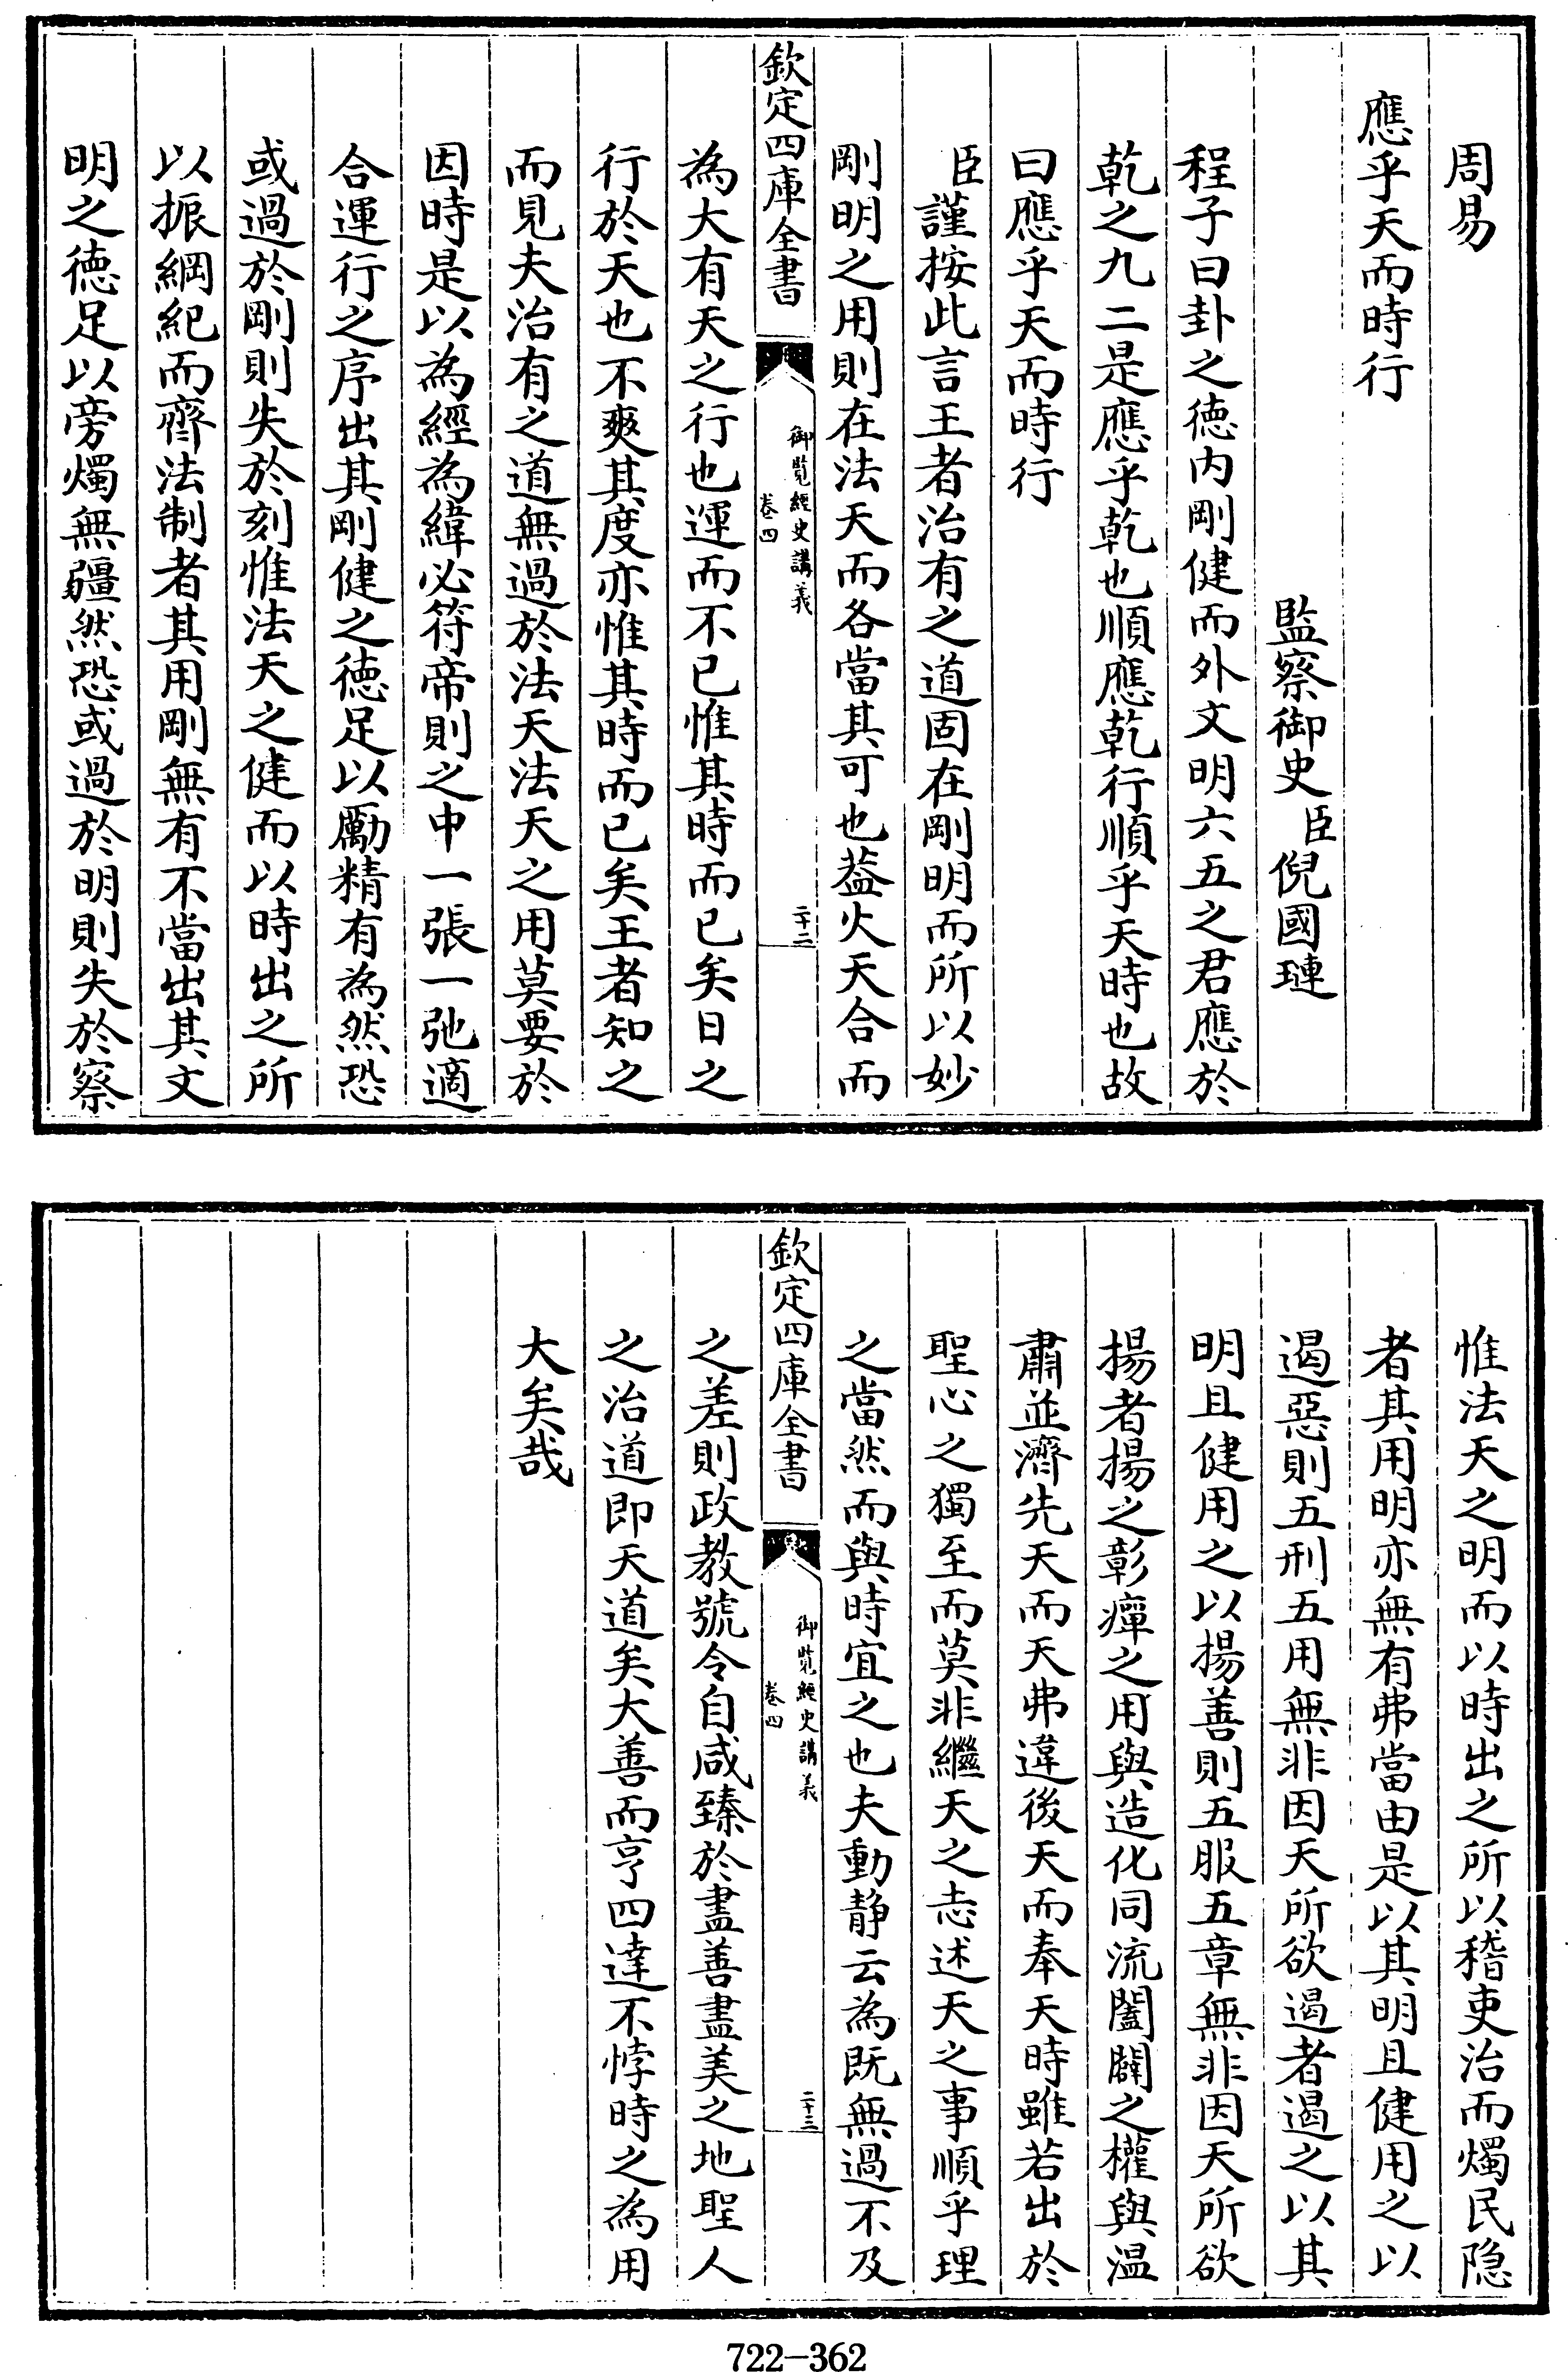 周易
應乎天而時行
監察御史臣倪國璉
程子曰卦之徳内剛健而外文明六五之君應於
乾之九二是應乎乾也順應乾行順乎天時也故
曰應乎天而時行
臣謹按此言王者治有之道固在剛明而所以妙
剛明之用則在法天而各當其可也葢火天合而
欽定四庫全書
御覧經史講義
卷四
二十二
為大有天之行也運而不已惟其時而已矣日之
行於天也不爽其度亦惟其時而已矣王者知之
而見夫治有之道無過於法天法天之用莫要於
因時是以為經為緯必符帝則之中一張一弛適
合運行之序出其剛健之徳足以勵精有為然恐
或過於剛則失於刻惟法天之健而以時出之所
以振綱紀而齊法制者其用剛無有不當出其文
明之徳足以旁燭無疆然恐或過於明則失於察
惟法天之明而以時出之所以稽吏治而燭民隐
者其用明亦無有弗當由是以其明且健用之以
遏惡則五刑五用無非因天所欲遏者遏之以其
明且健用之以揚善則五服五章無非因天所欲
揚者揚之彰癉之用與造化同流闔闢之權與温
肅並濟先天而天弗違後天而奉天時雖若出於
聖心之獨至而莫非繼天之志述天之事順乎理
之當然而與時宜之也夫動静云為既無過不及
欽定四庫全書
御覧經史講義
卷四
二十三
之差則政教號令自咸臻於盡善盡美之地聖人
之治道即天道矣大善而亨四達不悖時之為用
大矣哉
722-362